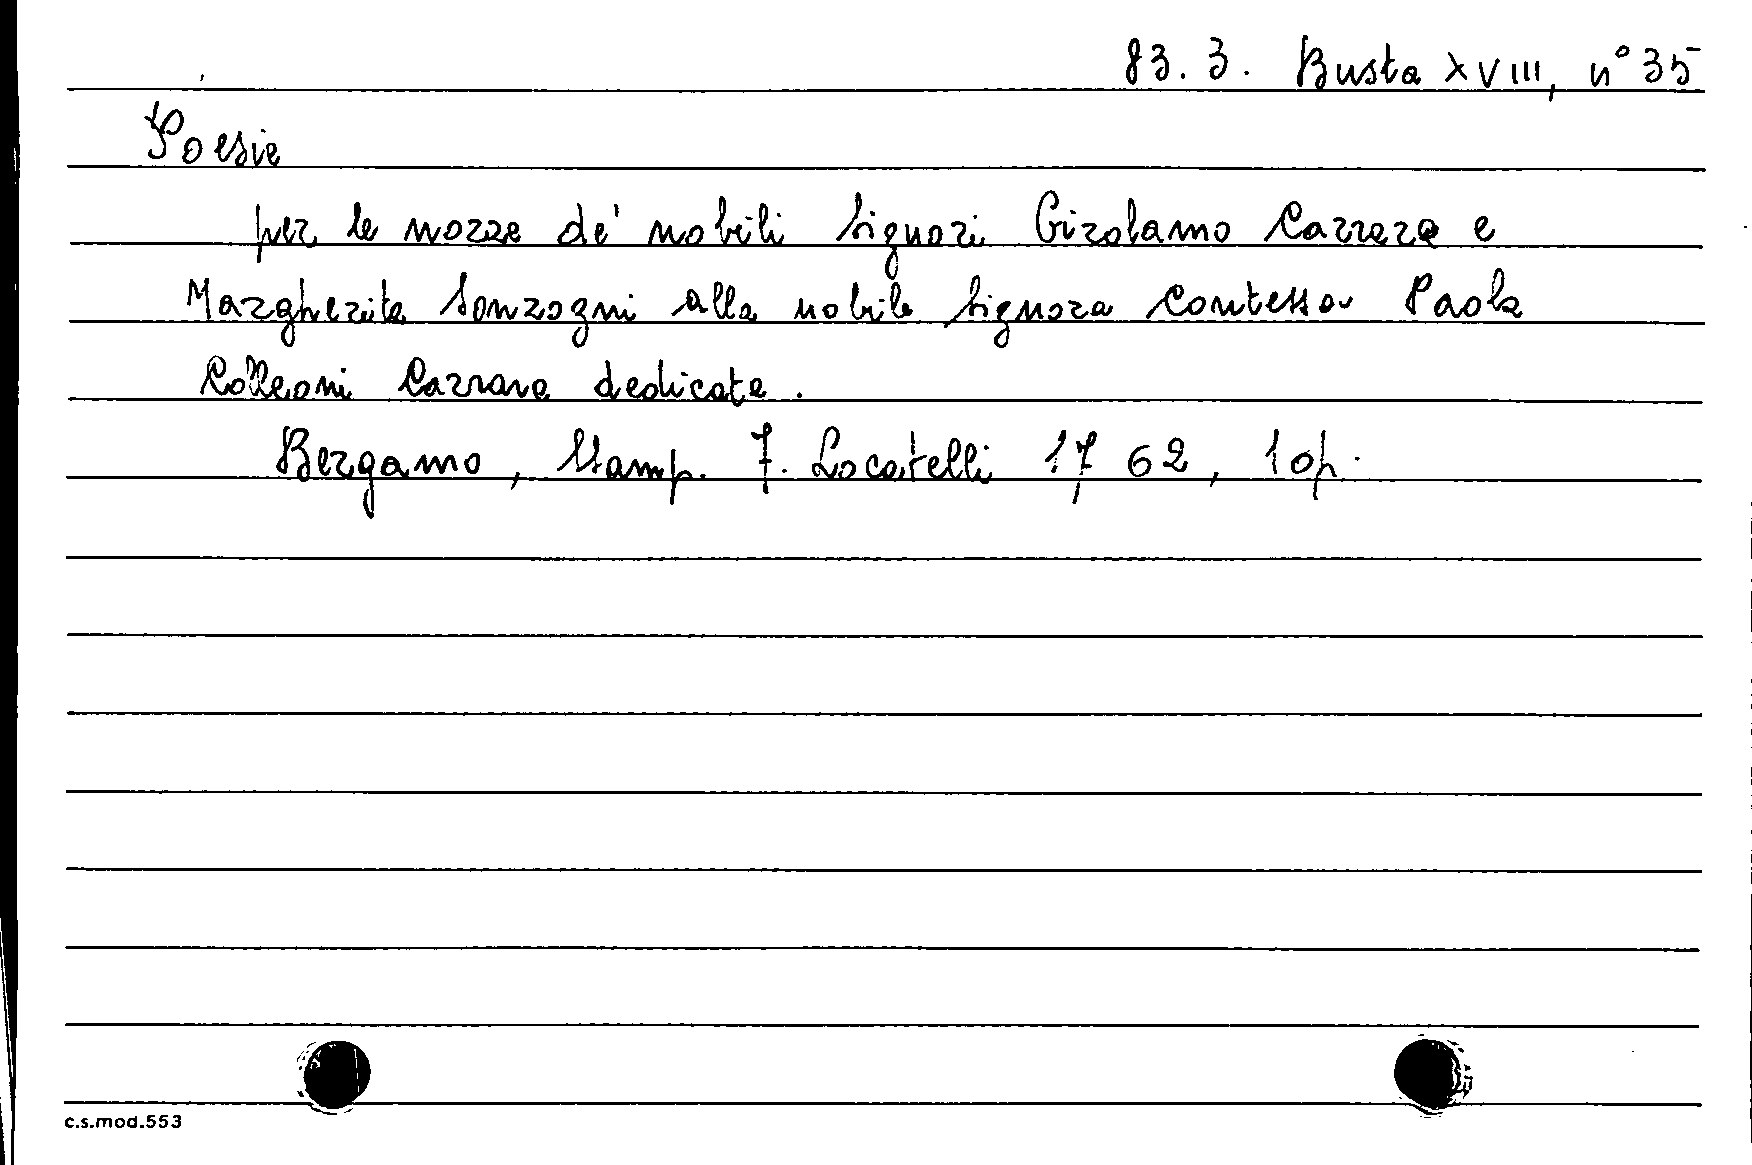 83.3. Busta XVIII, n° 35
Poesie
per le nozze de' nobili signori Girolamo Carrara e
Margherita Sonzogni alla nobile signora contessa Paola
Colleoni Carrara dedicate.
Bergamo, Stamp. F. Locatelli 1762, 10p.
c.s.mod.553